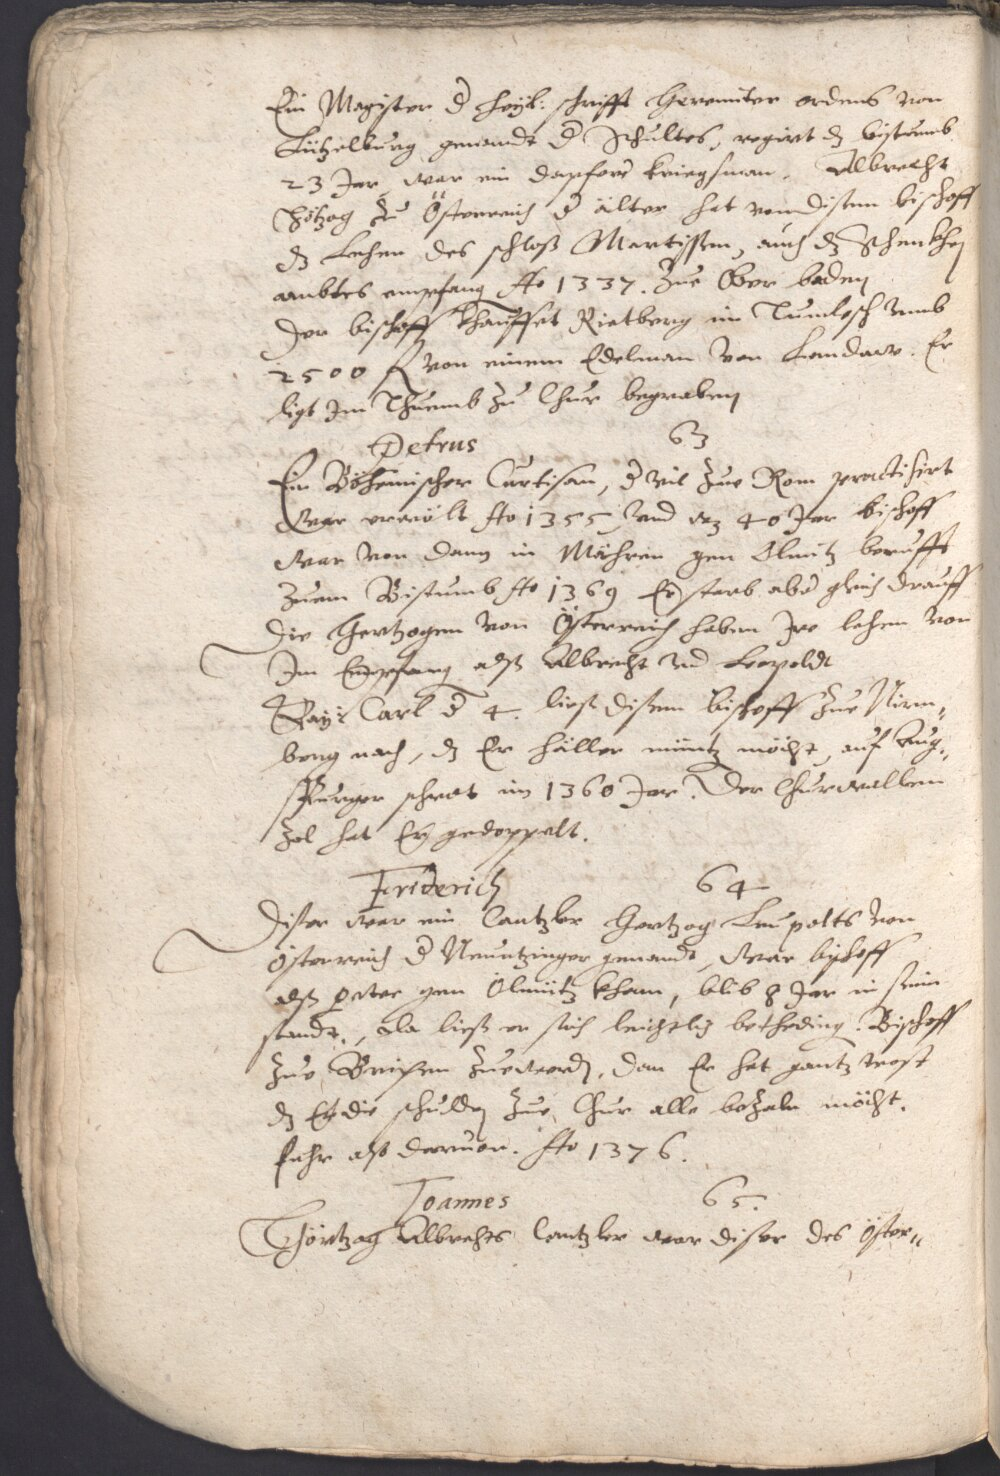 Ein Magister d heyl: schrifft Heremiter ordens von
Lützelburg genandt d Schultes, regirt dz bistumb
23 Jar, war ein dapfere kriegsman. Albrecht
Hertzog zu Österreich d älter hat von disem bischoff
dz Lehen des schloß Martissen, auch dz Schenkhen
ambtes empfang Ao 1337. Zue Ober baden
Der bischoff Khauffet Rietberg im Tumlesch umb
2500 fl von einem Edelman von Landaw. Er
ligt Im Thuemb zu Chur begraben
Petrus 63
Ein Böhemischer Curtisan, d vil zue Rom practisirt
war erwölt Ao 1355 vnd 40 Jar bischoff
war von dann in Mähren gen Olmütz berufft
zuem Bistumb Ao 1369 Er starb abe gleich drauff
Die Hertzogen von Österreich haben Jre lehen von
Im Empfang alß Albrecht vnd Leopoldt
Kayr Carl d 4. ließ disem bischoff zue Nirm„
berg nach, dz Er häller müntz möcht, auf Aug„
spurger schrot im 1360 Jar. Der Churwallem
zol hat Er gedoppelt.
Friderich 64
Diser war ein Cantzler Hertzog Leupolts von
Österreich d Neuntzinger genandt, war bischoff
alß peter gen Olmütz kham, blib 8 Jar in seim
standt, da ließ er sich leichtlich betheding. Bischoff
zue Brixen zuewerden, dan Er hat gantz trost
dz Er die schulden zue Chur alle bezaln möcht.
fuhr alß daruon. Ao 1376.
Joannes 65.
Hörtzog Albrechts Cantzler war diser des Öster„